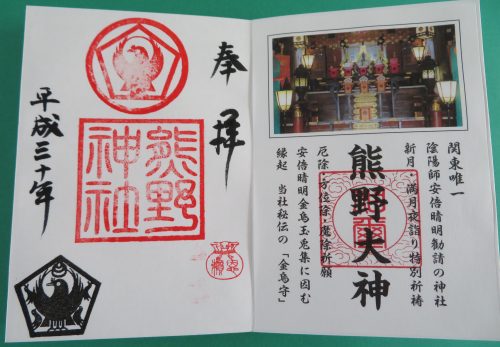 関東唯一
陰陽師安倍晴明勧請の神社
新月・満月夜詣り特別祈祷
熊野大神
厄除・方位除・魔除祈願
安倍晴明金烏玉兎集に因む
縁起 当社秘伝の「金烏守」
奉拝
熊野
神社
平成三十年